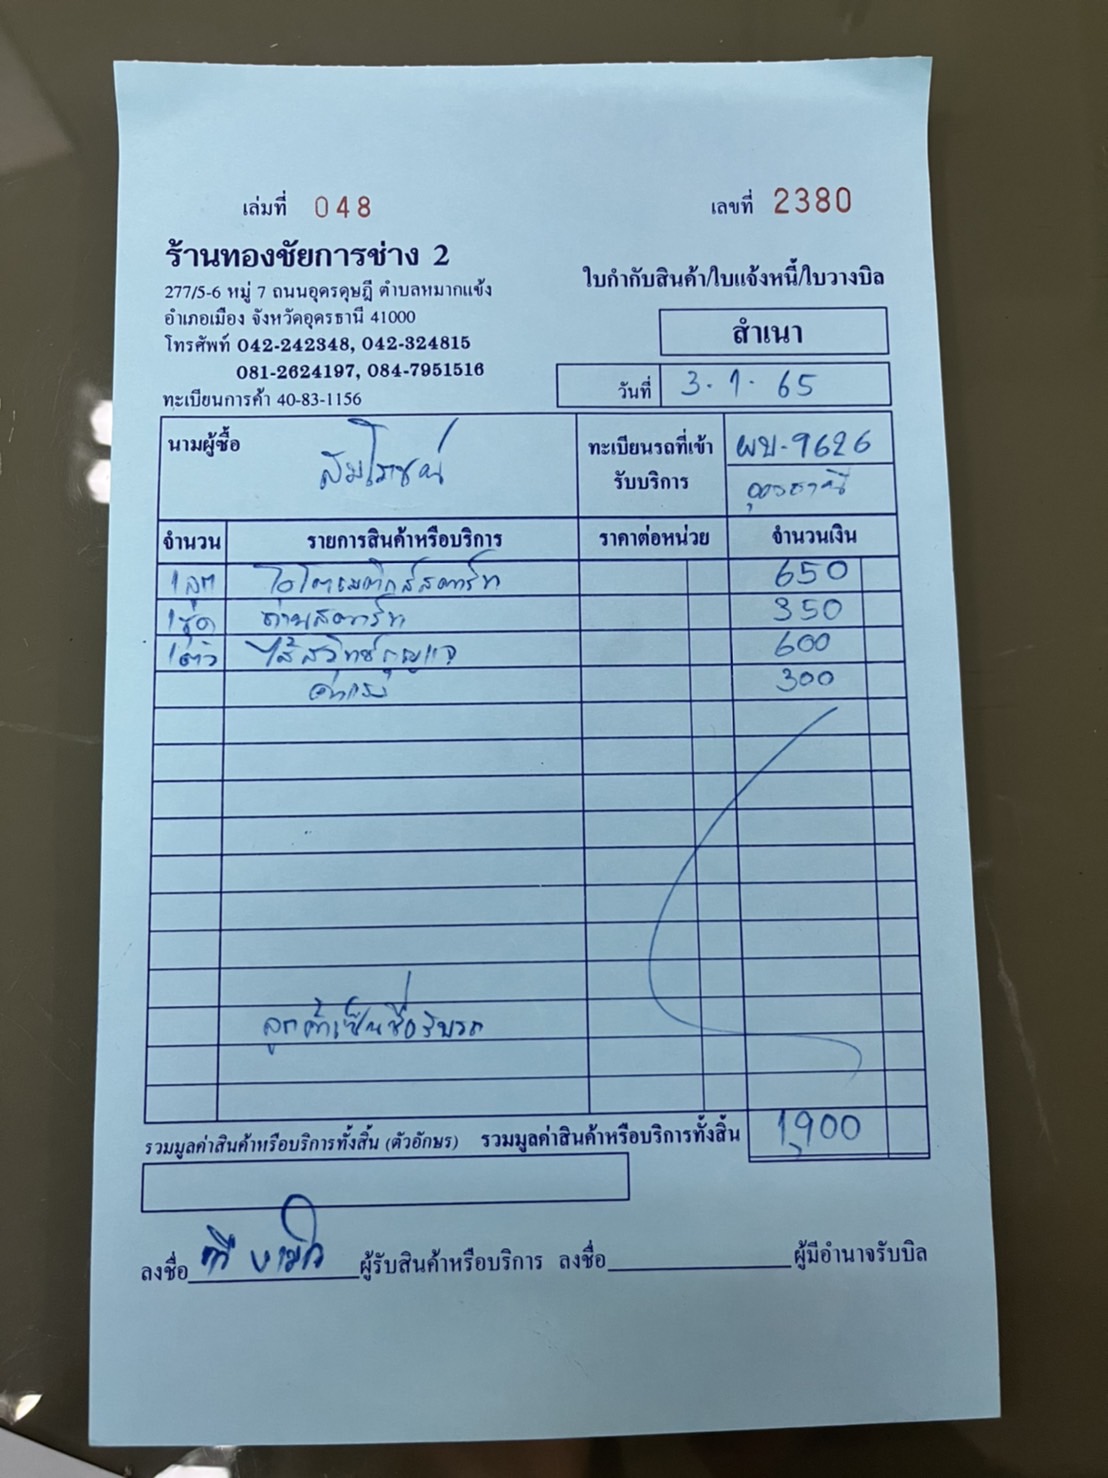 เล่มที่ 048 เลขที่ 2380
ร้านทองชัยการช่าง 2
277/5-6 หมู่ 7 ถนนอุดรดุษฎี ตำบลหมากแข้ง
อำเภอเมือง จังหวัดอุดรธานี 41000
โทรศัพท์ 042-242348, 042-324815
081-2624197, 084-7951516
ทะเบียนการค้า 40-83-1156
ใบกำกับสินค้า/ใบแจ้งหนี้/ใบวางบิล
สำเนา
วันที่ 3-1-65
นามผู้ซื้อ
ทะเบียนรถที่เข้ารับบริการ ผบ-9626
อุดรธานี
จำนวน รายการสินค้าหรือบริการ ราคาต่อหน่วย จำนวนเงิน
1ลูก ออโตเมติกส์สตาร์ท 650
1ชุด ถ่านสตาร์ท 350
1ตัว ไส้สวิทช์กุญแจ 600
ค่าแรง 300
ลูกค้าเซ็นชื่อรับรถ
รวมมูลค่าสินค้าหรือบริการทั้งสิ้น (ตัวอักษร) รวมมูลค่าสินค้าหรือบริการทั้งสิ้น 1,900
ลงชื่อ ผู้รับสินค้าหรือบริการ ลงชื่อ ผู้มีอำนาจรับบิล